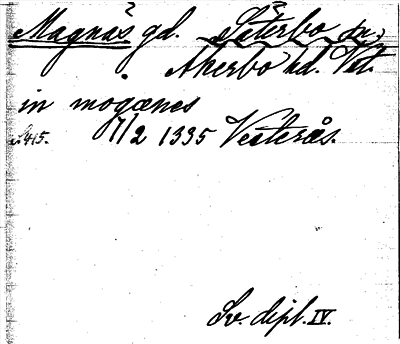 Magnäs gd. Säterbo sn,
Åkerbo hd. Vst.
in mogænes
s. 415. 7/2 1335 Vesterås.
Sv. dipl. IV.